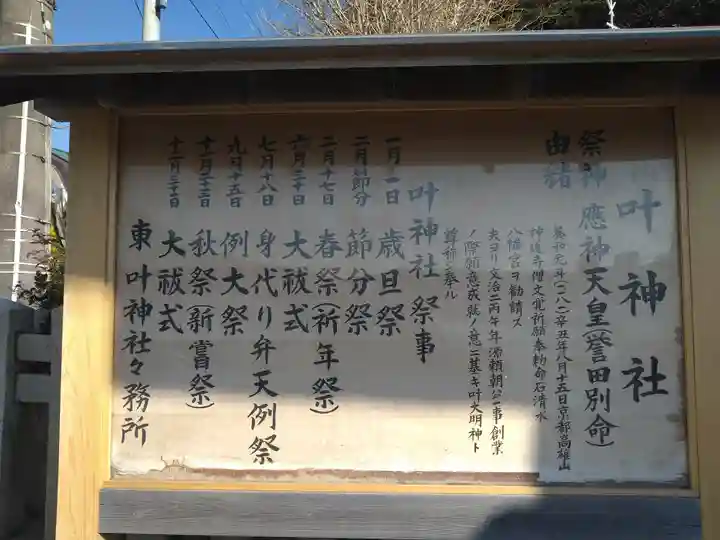 叶神社
祭神 應神天皇(誉田別命)
由緒
養和元年(一一八一)辛丑年八月十五日京都高雄山
神護寺僧文覚祈願奉勅命石清水
八幡宮ヲ勧請ス
夫ヨリ文治二丙午年源頼朝公一事創業
ノ際祈願成就ノ意ニ基キ叶大明神ト
尊称シ奉ル
叶神社 祭事
一月一日 歳旦祭
二月節分 節分祭
二月十七日 春祭(祈年祭)
六月三十日 大祓式
七月十八日 身代り弁天例祭
九月十五日 例大祭
十一月二十三日 秋祭(新嘗祭)
十二月三十一日 大祓式
東 叶神社々務所